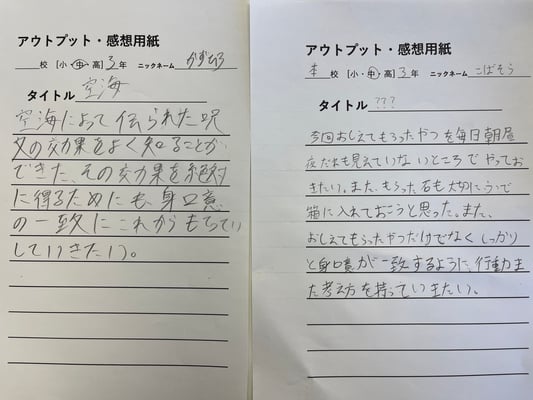 アウトプット・感想用紙
校 [小・中・高] 3年 ニックネーム かずひろ
タイトル 空海
空海によって伝られた呪
文の効果をよく知ることが
できた、その効果を絶対
に得るためにも、身口意
の一致にこれからもちてい
していきたい。
アウトプット・感想用紙
本 校 [小・中・高] 3年 ニックネーム こばそう
タイトル ???
今回おしえてもらったやつを毎日朝昼
夜だれも見えていないところでやってお
きたい。また、もらった石も大切に
箱に入れておこうと思った。また、
おしえてもらったやつだけでなくしっかり
と身口意が一致するように、行動ま
た考え方を持っていきたい。